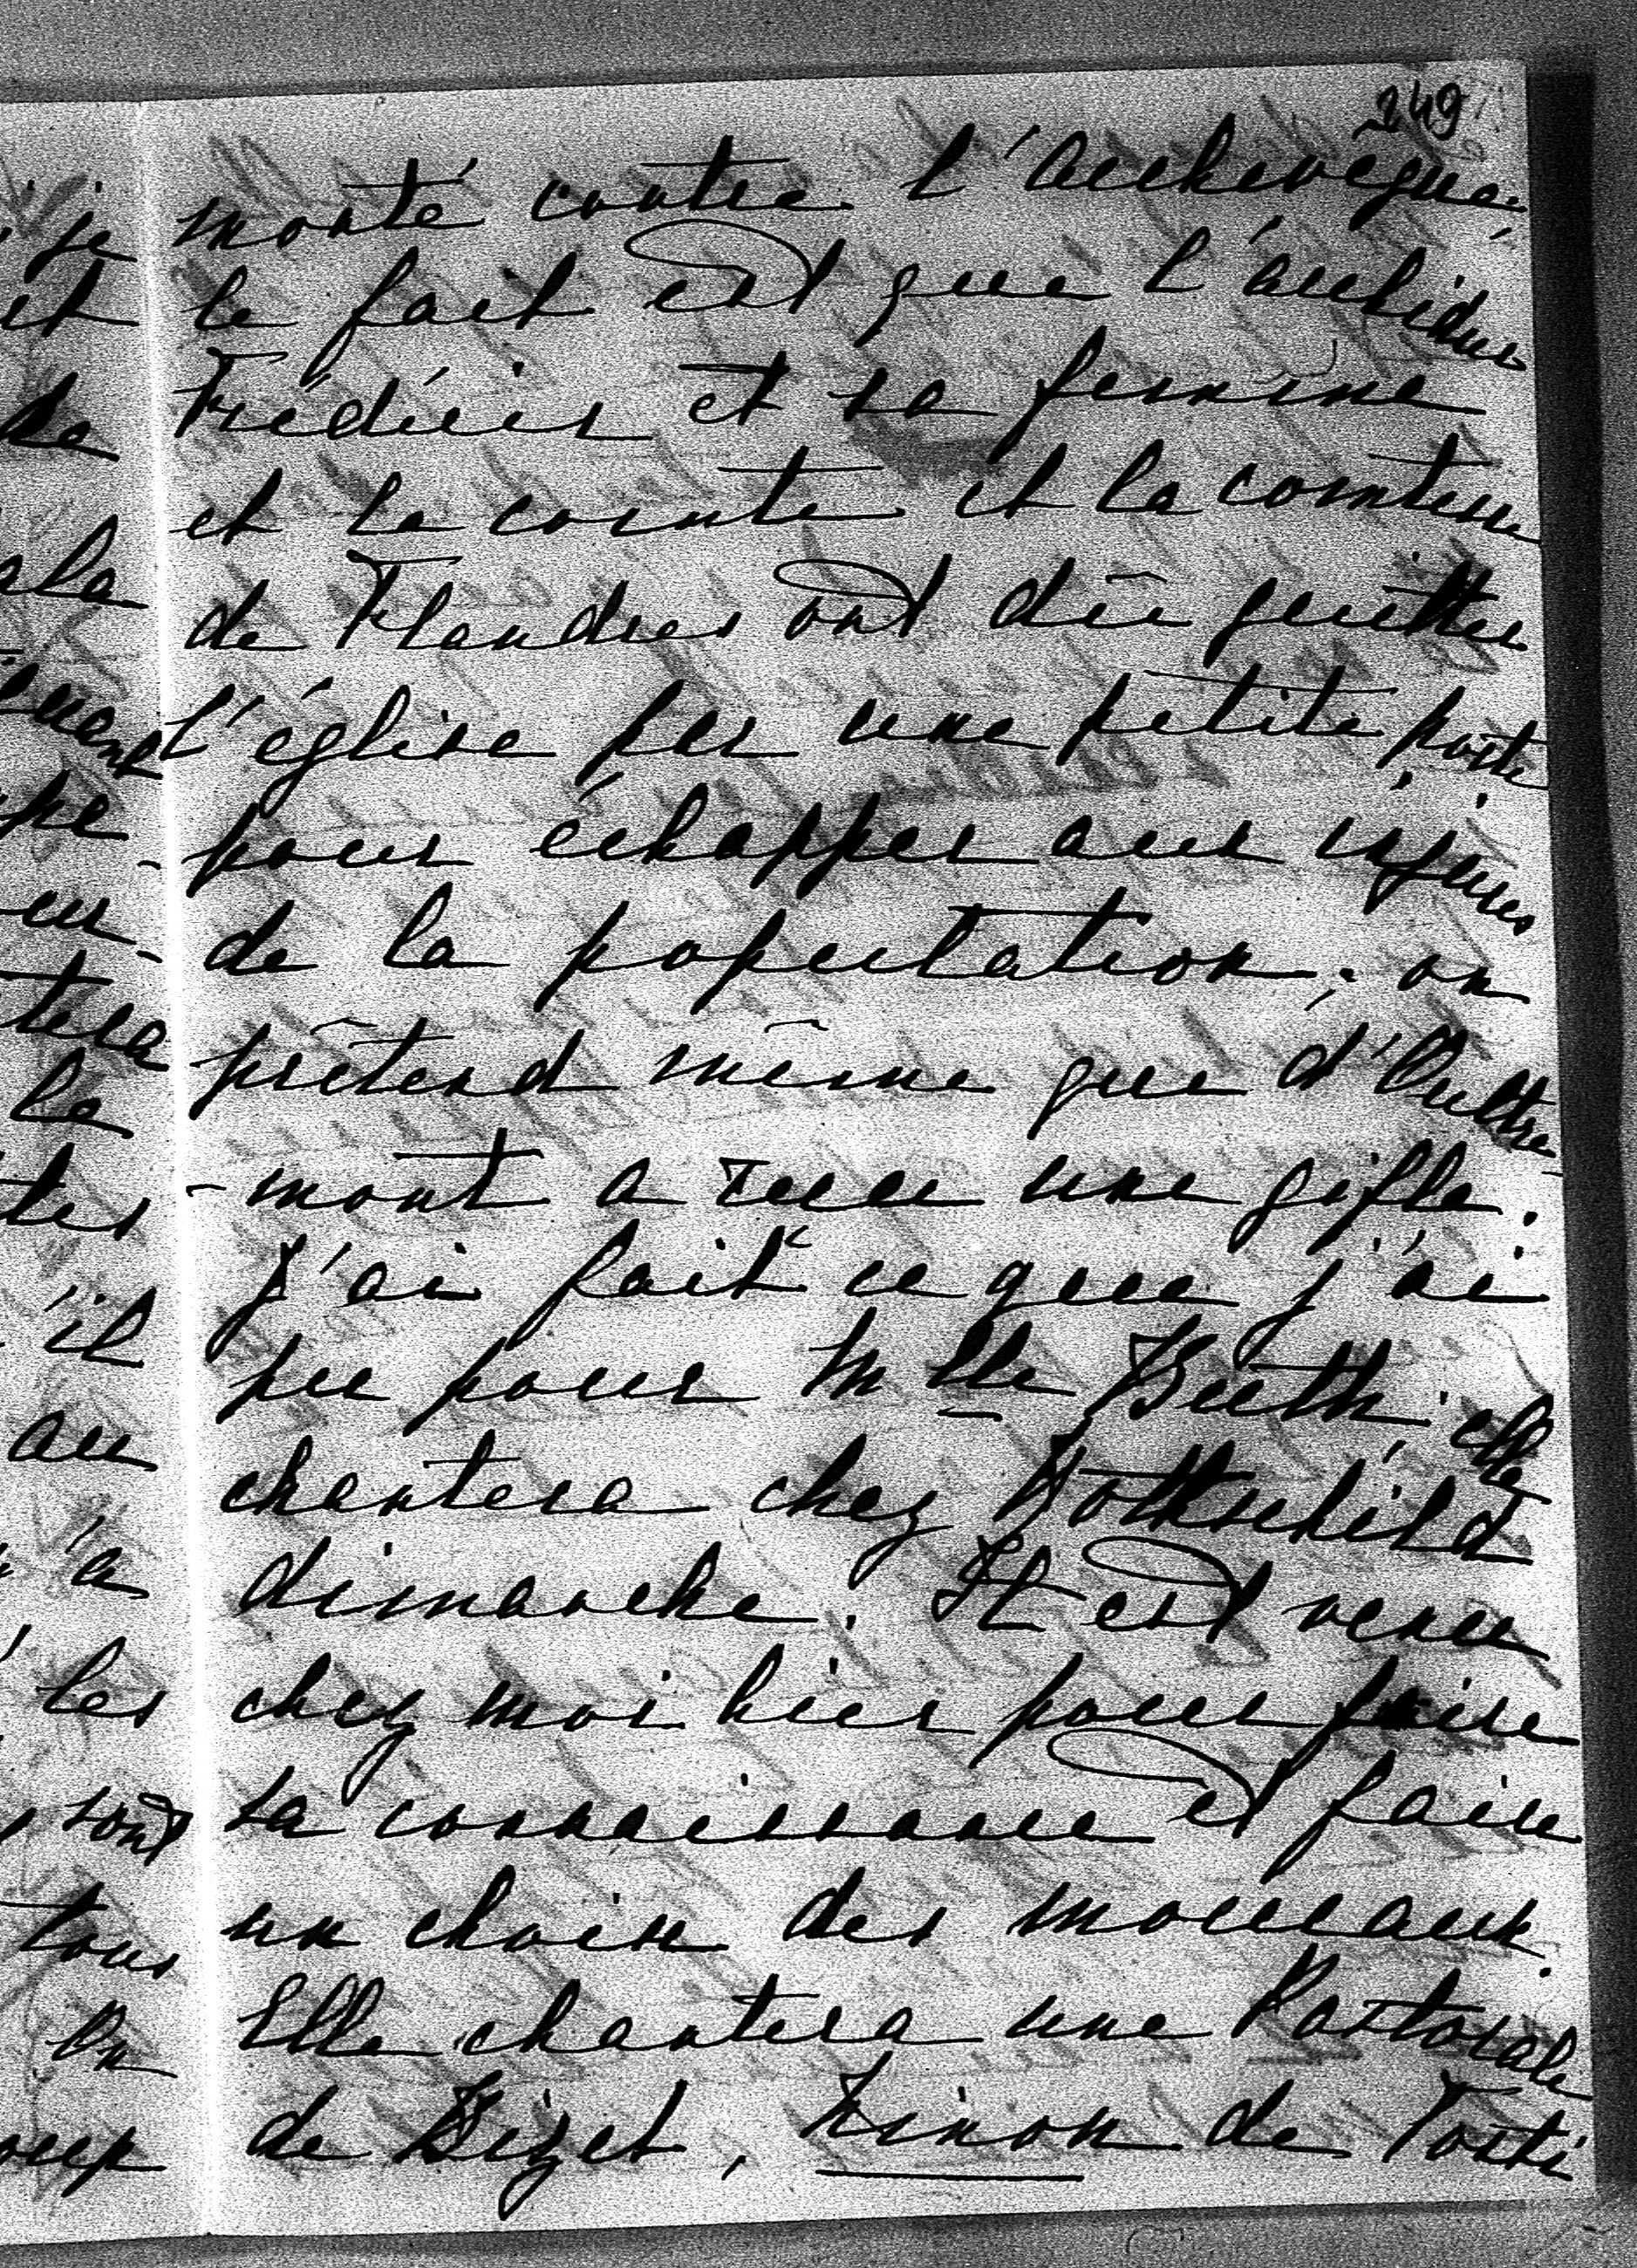 249
monté contre l'archevêque,
le fait est que l'archiduc
Frédéric et sa femme
et le comte et la comtesse
de Flandres ont dû quitter
l'église par une petite porte
pour échapper aux injures
de la population; on
prétend même que d'Oultre
-mont a reçu une gifle.
J'ai fait ce que j'ai
pu pour Mlle Buth: elle
chantera chez Rothschild
dimanche. Il est venu
chez moi hier pour faire
sa connaissance et faire
un choix des morceaux.
Elle chantera une Pastorale
de Bizet, Ninon de Tosti
je
et
de
la
pe
eur
tera
le
tes
il
au
n'a
les
sont
tous
On
oup